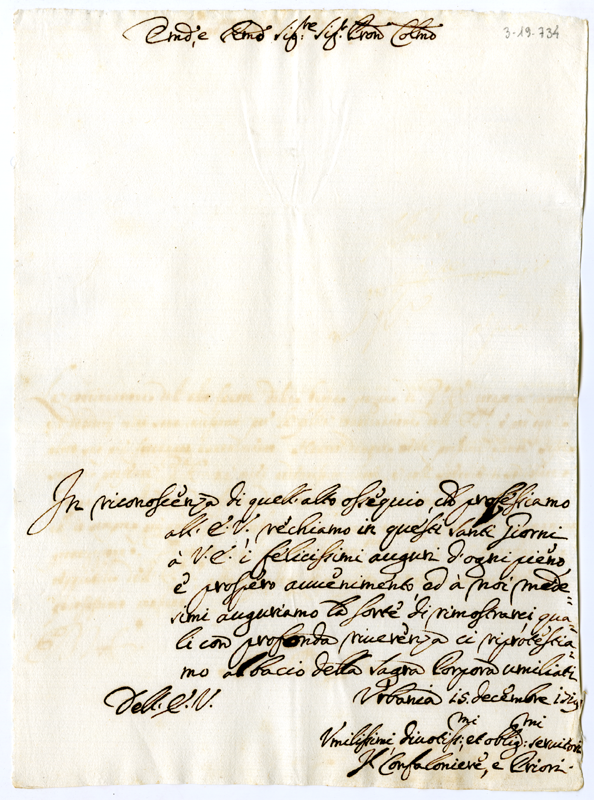 Emo, e Rmo Sigre Sigr Pron Colmo
3-19-734
In riconoscenza di quell'alto ossequio, ch' professiamo
all' E. V. rechiamo in questi Santi Giorni
à V. E. i felicissimi auguri d'ogni pieno,
e prospero avvenimento, ed à noi mede=
simi auguriamo la sorte di rimostrarci, qua=
li con profonda riverenza ci riprotestia=
mo al bacio della Sagra Porpora umiliati
Dell' E. V. Urbania 15. decembre
Umilissimi divotiss:mi et oblig:mi servitori
Il Confaloniere, e Priori